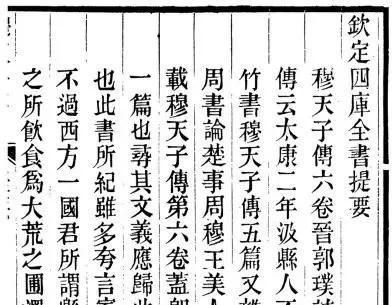 欽定四庫全書提要
穆天子傳六卷晉郭璞
傳云太康二年汲縣人
竹書穆天子傳五篇又
周書論楚事周穆王美人
載穆天子傳第六卷蓋卽
一篇也尋其文義應歸此
也此書所紀雖多夸言
不過西方一國君所謂縣
之所飮食爲大荒之圃澤